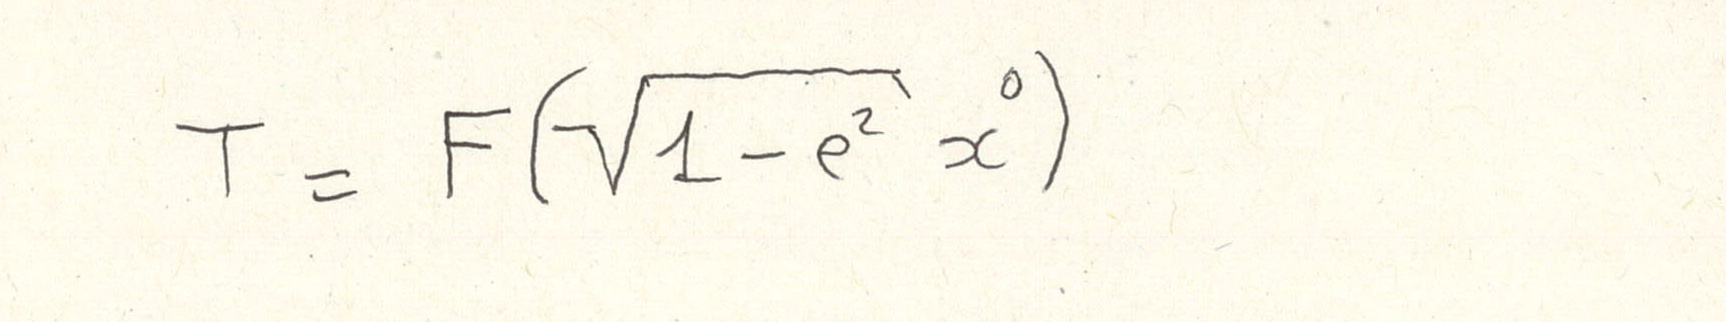 T = F(√(1 - e²) x⁰)